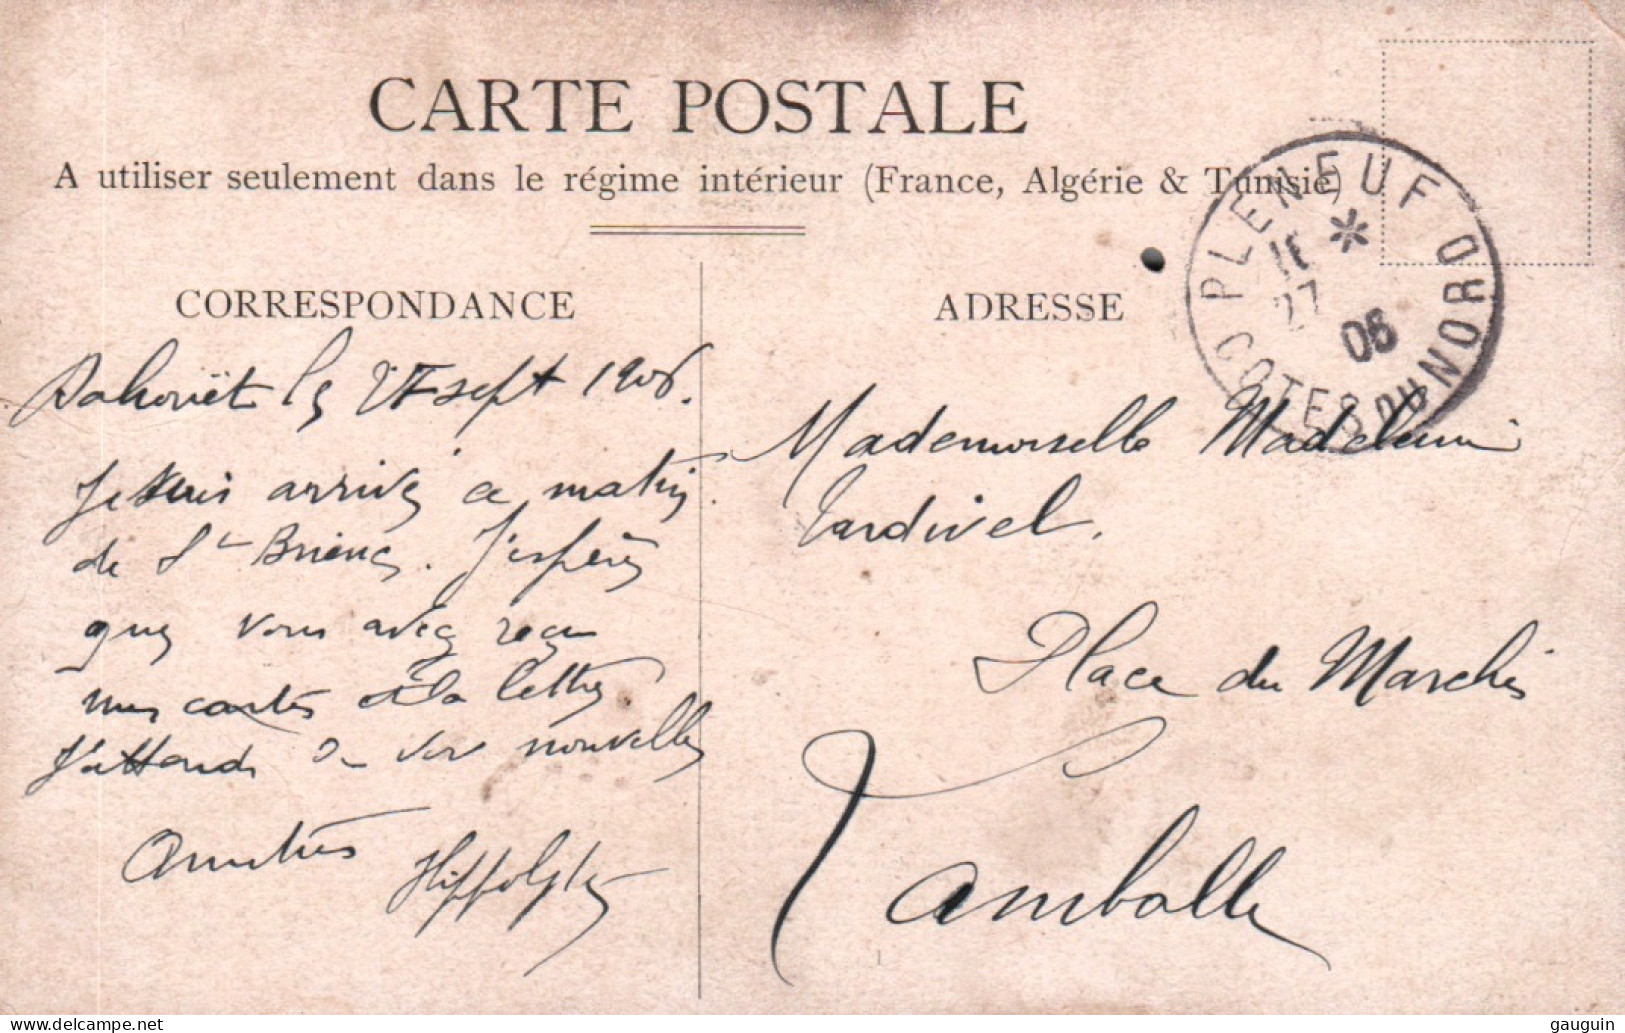 CARTE POSTALE
A utiliser seulement dans le régime intérieur (France, Algérie & Tunisie)
PLENEUF
CÔTES DU NORD
16
27
06
CORRESPONDANCE
Dahouët le 27 sept 1906.
Je suis arrivé ce matin
de St Brieuc. J'espère
que vous avez reçu
mes cartes et la lettre
J'attends de vos nouvelles
Amitiés
Hippolyte
ADRESSE
Mademoiselle Madeleine
Tardivel.
Place du Marché
Lamballe
gauguin © Delcampe.net